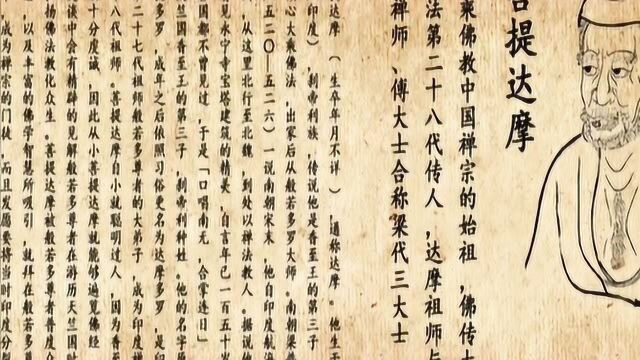 菩提达摩
乘佛教中国禅宗的始祖,佛传大
法第二十八代传人,达摩祖师与
禅师、傅大士合称梁代三大士
达摩(生卒年月不详),通称达摩。他生于
印度),刹帝利族,传说他是香至王的第三子
心大乘佛法,出家后从般若多罗大师。南朝梁普
五二〇—五二六)一说南朝宋末,他自印度航海
,从这里北行至北魏,到处以禅法教人。据说他
见永宁寺宝塔建筑的精美,自言年已一百五十岁
国都不曾见过,于是「口唱南无,合掌连日」
竺国香至王的第三子,刹帝利种姓。他的名字原
罗,成年之后依照习俗更名为达摩多罗,是印
二十七代祖师般若多尊者的大弟子,成为印度禅
八代祖师。菩提达摩自小就聪明过人,因为香至
十分虔诚,因此从小菩提达摩就能够遍览佛经
谈中会有精辟的见解般若多尊者在游历天竺国时
扬佛法教化众生。菩提达摩被般若多尊者普度众
,以及丰富的佛学智慧所吸引,就拜在般若多
成为禅宗的门徒,而且发愿要将当时印度分